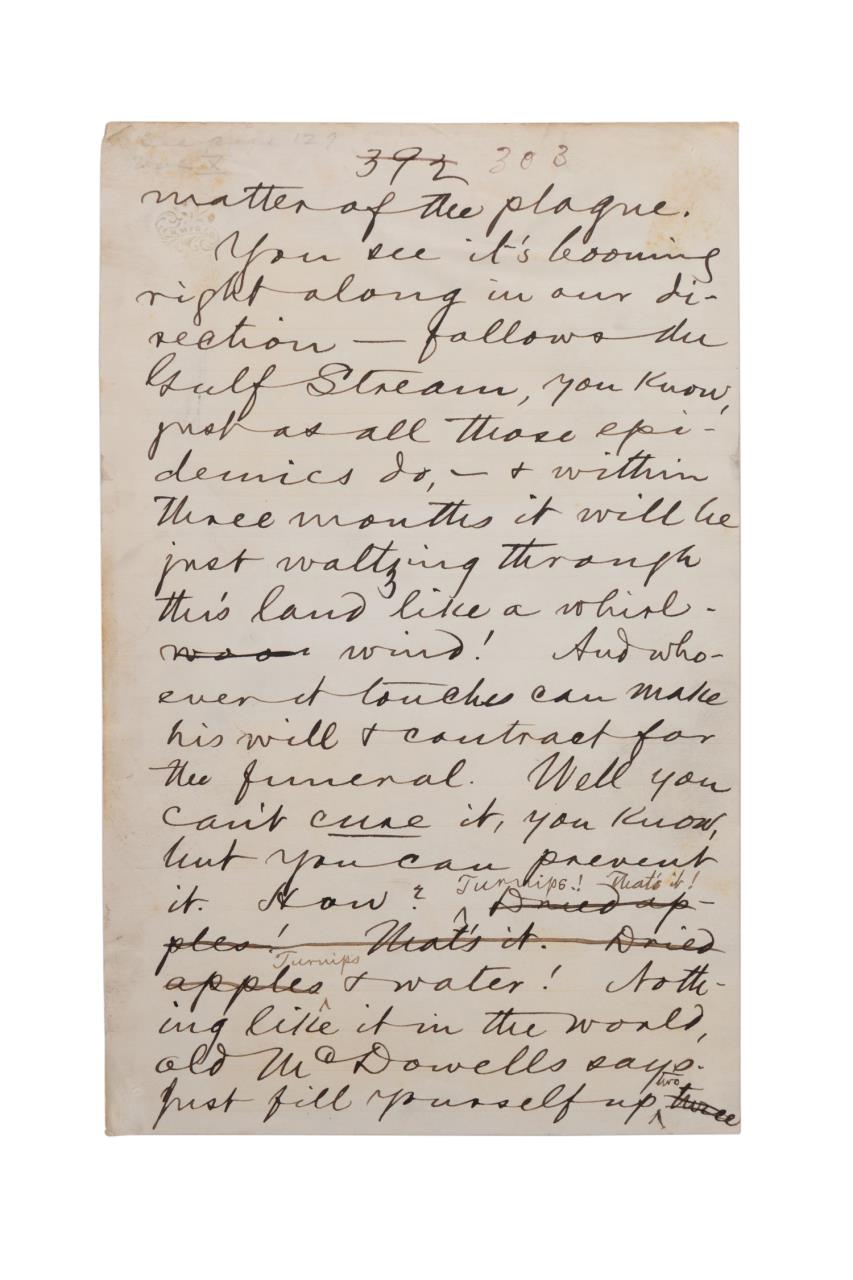 392 303
matter of the plague.
You see it's booming
right along in our di-
rection — follows the
Gulf Stream, you know,
just as all those epi-
demics do, — & within
three months it will be
just waltzing through
this land like a whirl-
wind! And who-
ever it touches can make
his will & contract for
the funeral. Well you
can't cure it, you know,
but you can prevent
Turnips! That's it!
it. How? Dried ap-
ples! That's it. Dried
Turnips
apples & water! Noth-
ing like it in the world,
old McDowells says.
two
Just fill yourself up